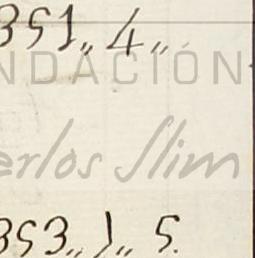 351,, 4,,
NDACIÓN
erlos Slim
353,, 1,, 5.